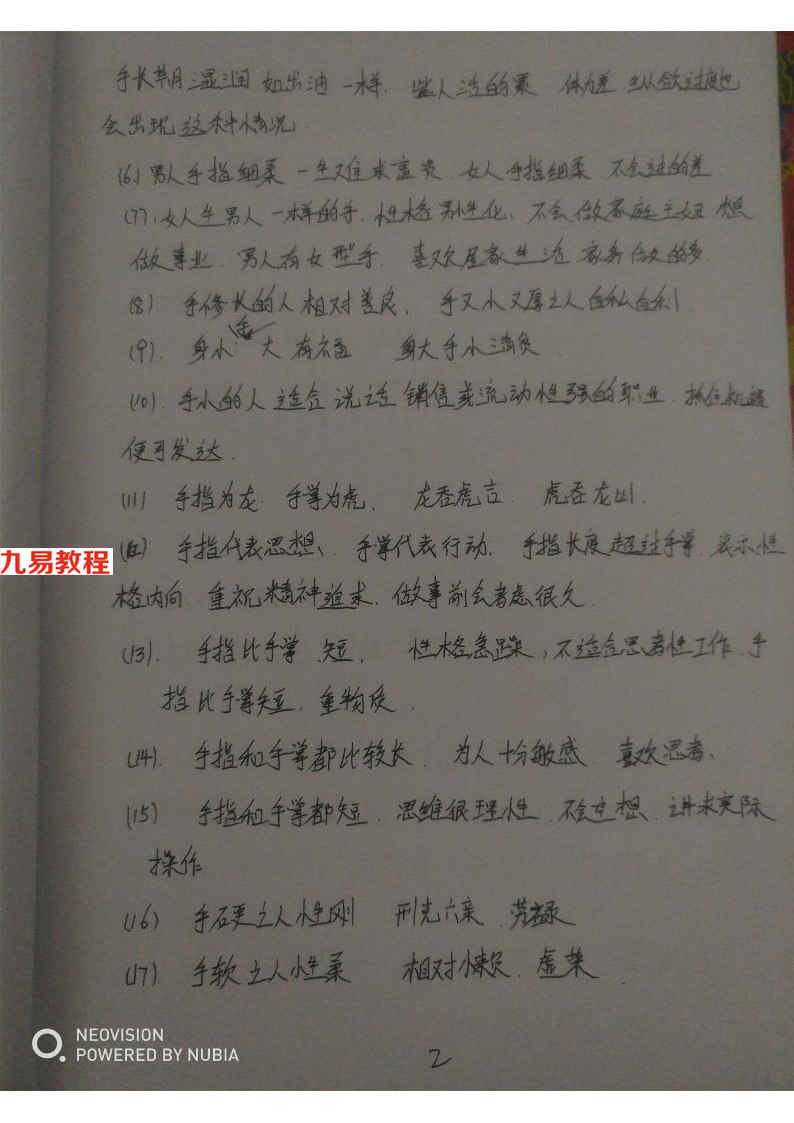 手长期湿润 如出油一样. 些人活的累 体力差 纵欲过度也
会出现这种情况.
(6) 男人手指细柔 一生难求富贵. 女人手指细柔 不会过的差
(7). 女人生男人一样的手. 性格男性化、不会做家庭主妇 想
做事业. 男人有女型手. 喜欢居家生活 家务做的多.
(8) 手修长的人相对善良, 手又小又厚之人自私自利.
(9). 身小手大有福 身大手小清贫
(10). 手小的人 适合说话 销售或流动性强的职业. 抓住机遇
便可发达.
(11) 手指为龙. 手掌为虎, 龙吞虎吉. 虎吞龙凶.
九易教程
(12) 手指代表思想、手掌代表行动. 手指长度超过手掌. 表示性
格内向. 重视精神追求. 做事前会考虑很久.
(13). 手指比手掌 短, 性格急躁, 不适合思考性工作. 手
指比手掌短. 重物质.
(14). 手指和手掌都比较长. 为人十分敏感. 喜欢思考.
(15) 手指和手掌都短. 思维很理性. 不会空想. 讲求实际
操作
(16) 手硬之人性刚 刑克六亲. 劳碌
(17) 手软之人性柔 相对懒, 虚荣.
2
NEOVISION
POWERED BY NUBIA